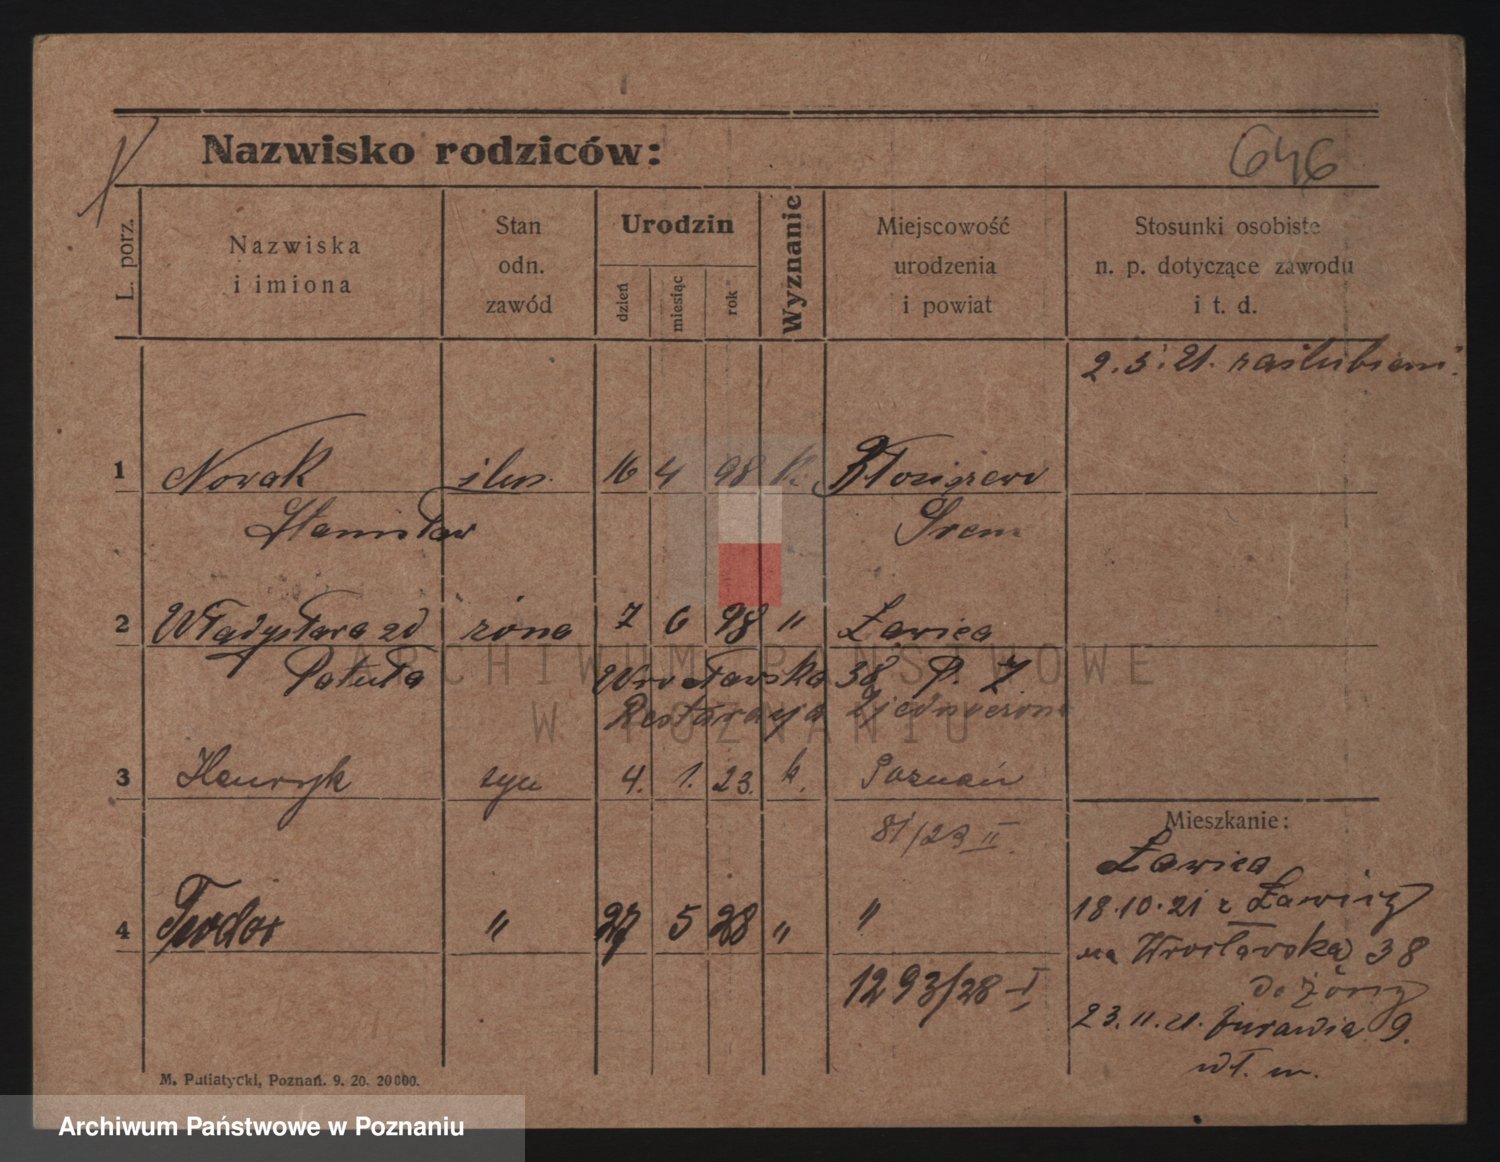 Nazwisko rodziców:
646
L. porz.
Nazwiska
i imiona
Stan
odn.
zawód
Urodzin
dzień
miesiąc
rok
Wyznanie
Miejscowość
urodzenia
i powiat
Stosunki osobiste
n. p. dotyczące zawodu
i t. d.
2.5.21. zaślubieni
1 Nowak 16 4 98 k.
Stanisław Śrem
2 Władysława zd żona 7 6 98 " Ławica
Patuła Wrocławska 38 P. Z
Restauracja Zjednoczona
3 Henryk syn 4. 1. 23. k. Poznań
81/23 II
4 Teodor " 27 5 28 " "
1293/28 I
Mieszkanie:
Ławica
18.10.21 z Ławicy
na Wrocławska 38
do żony
23.11.21. Żurawia 9.
wł. m.
M. Putiatycki, Poznań. 9. 20. 20000.
ARCHIWUM PAŃSTWOWE
W POZNANIU
Archiwum Państwowe w Poznaniu